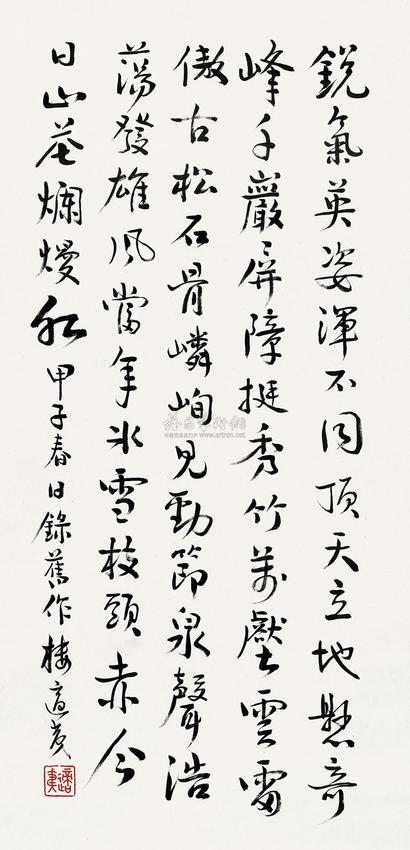 銳氣英姿渾不同頂天立地懸奇
峰千巖屏障挺秀竹萬壑雲雷
傲古松石骨嶙峋見勁節泉聲浩
蕩發雄風當年冰雪枝頭赤今
日山花爛熳紅甲子春日錄舊作樓適夷